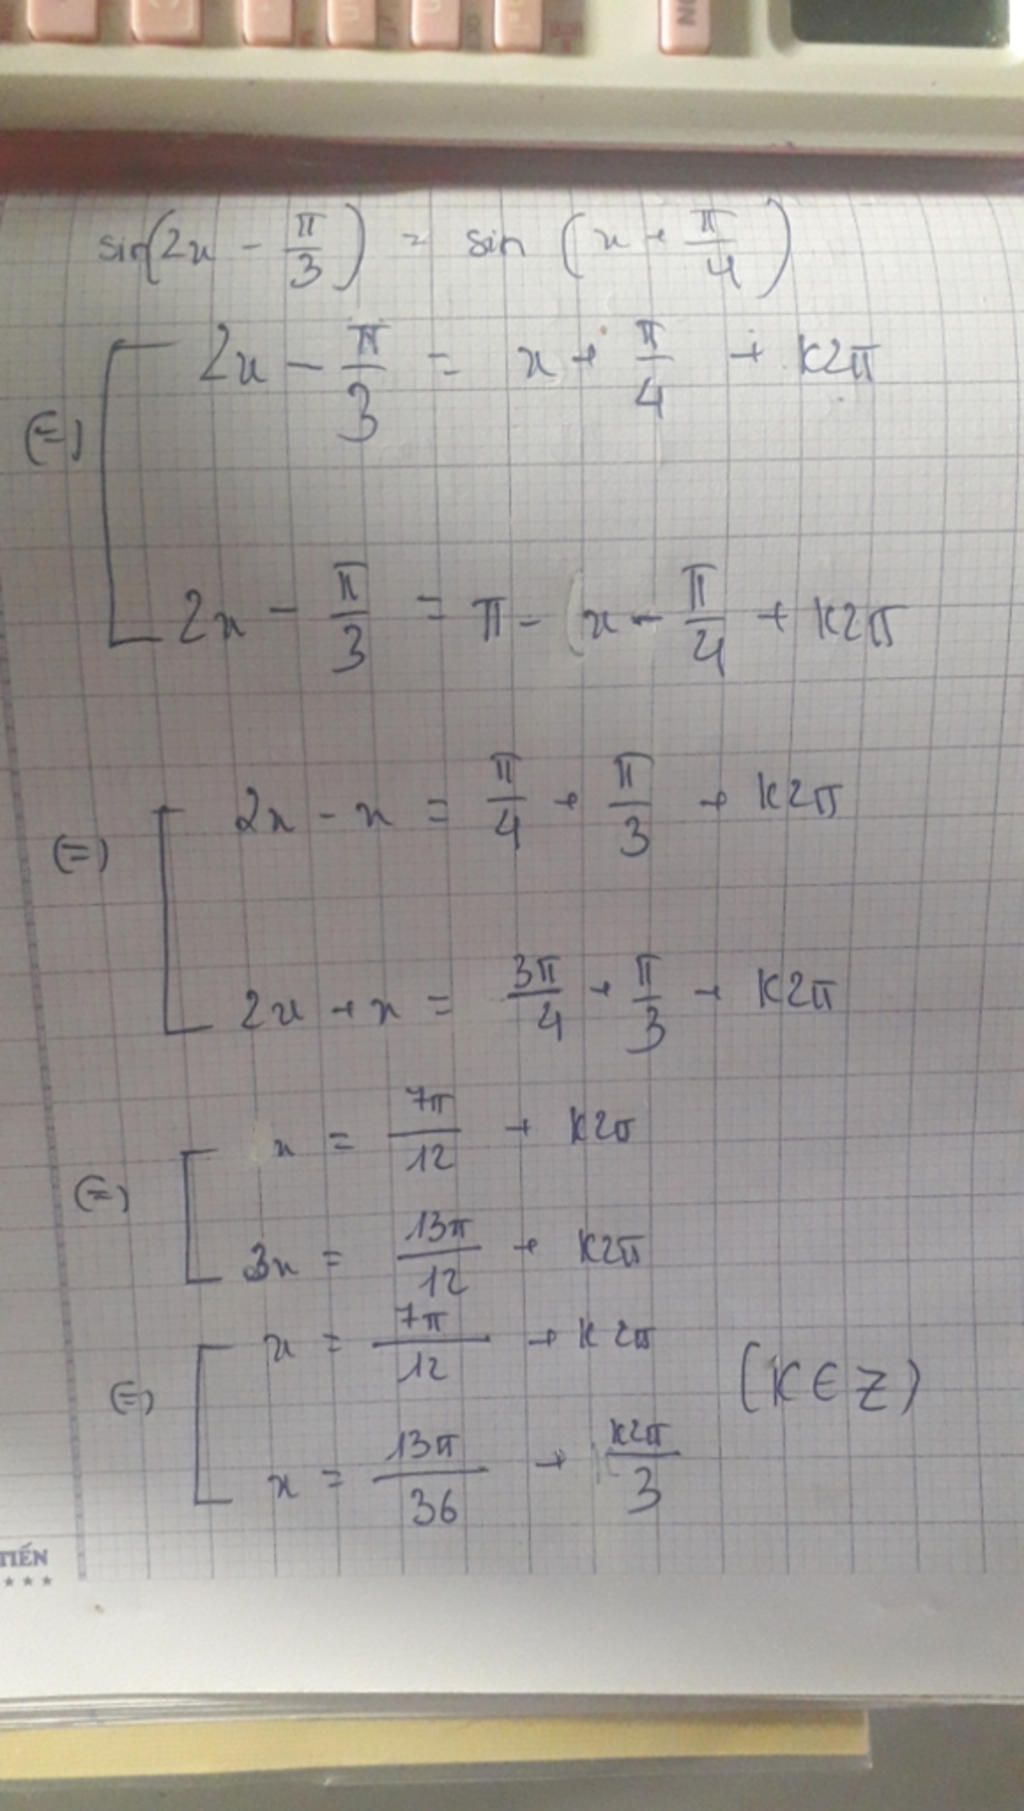 sin(2x - π/3) = sin (x + π/4)
(=) [ 2x - π/3 = x + π/4 + k2π
2x - π/3 = π - x - π/4 + k2π
(=) [ 2x - x = π/4 + π/3 + k2π
2x + x = 3π/4 + π/3 + k2π
(=) [ x = 7π/12 + k2π
3x = 13π/12 + k2π
(=) [ x = 7π/12 + k2π (K ∈ Z)
x = 13π/36 + k2π/3
TIẾN